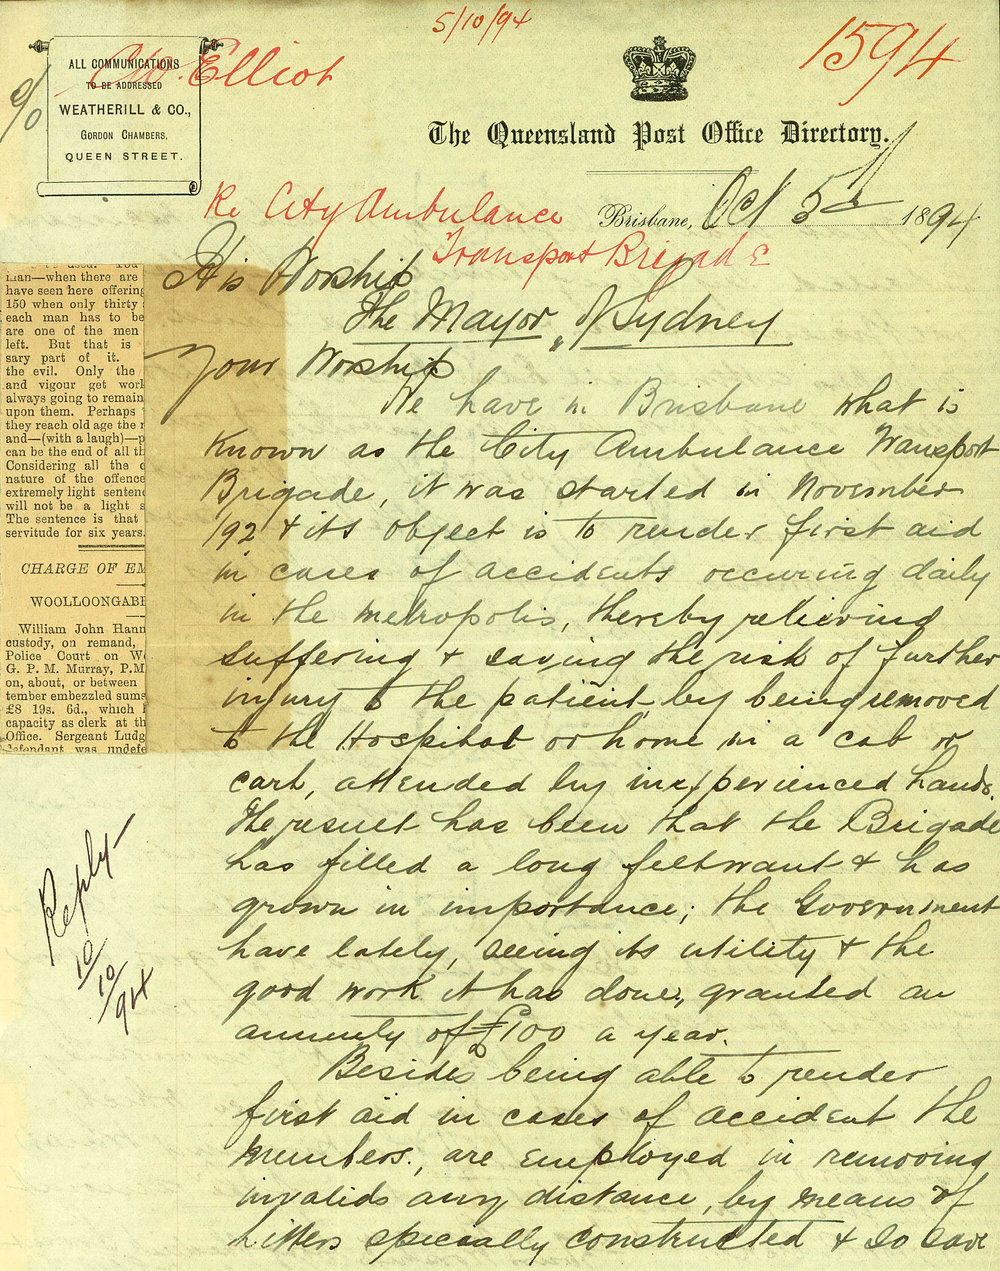 5/10/94
1594
Elliot
ALL COMMUNICATIONS
TO BE ADDRESSED
WEATHERILL & CO.,
GORDON CHAMBERS,
QUEEN STREET.
The Queensland Post Office Directory.
Brisbane, Oct 5th 1894
Re City Ambulance
Transport Brigade
His Worship
The Mayor of Sydney
Your Worship
We have in Brisbane what is
known as the City Ambulance Transport
Brigade, it was started in November
'92 & its object is to render first aid
in cases of accidents occuring daily
in the metropolis, thereby relieving
suffering & saving the risk of further
injury to the patient, by being removed
to the Hospital or home in a cab or
cart, attended by inexperienced hands.
The result has been that the Brigade
has filled a long felt want & has
grown in importance; the Government
have lately, seeing its utility & the
good work it has done, granted an
annuity of £100 a year.
Besides being able to render
first aid in cases of accident the
members, are employed in removing
invalids any distance, by means of
litters specially constructed & so save
Reply
10/10/94
used. You
man—when there are
have seen here offering
150 when only thirty
each man has to be
are one of the men
left. But that is
sary part of it.
the evil. Only the
and vigour get worl
always going to remain
upon them. Perhaps
they reach old age the r
and—(with a laugh)—p
can be the end of all th
Considering all the c
nature of the offence
extremely light sentenc
will not be a light s
The sentence is that
servitude for six years.
CHARGE OF EM
WOOLLOONGABB
William John Hann
custody, on remand,
Police Court on We
G. P. M. Murray, P.M
on, about, or between
tember embezzled sums
£8 19s. 6d., which h
capacity as clerk at th
Office. Sergeant Ludg
defendant was undefe